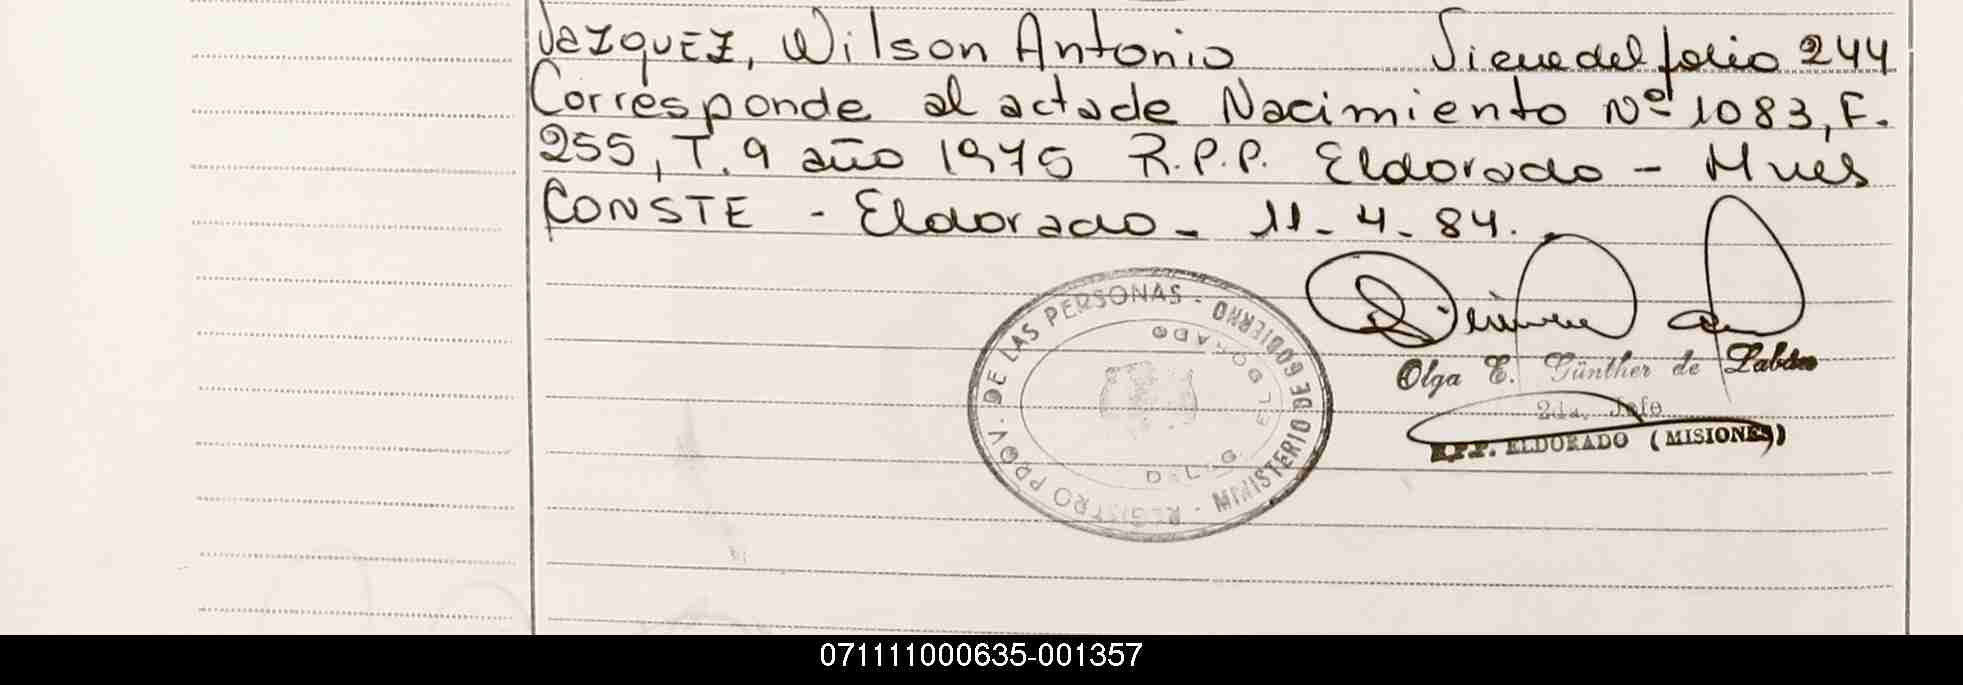 Vazquez, Wilson Antonio Viene del folio 244
Corresponde al acta de Nacimiento Nº 1083, F.
255, T. 9 año 1975 R.P.P. Eldorado - Mnes
CONSTE - Eldorado - 11-4-84.
REGISTRO PROV. DE LAS PERSONAS - MINISTERIO DE GOBIERNO
ELDORADO
Olga E. Günther de Laban
2da. Jefe
R.P.P. ELDORADO (MISIONES)
071111000635-001357